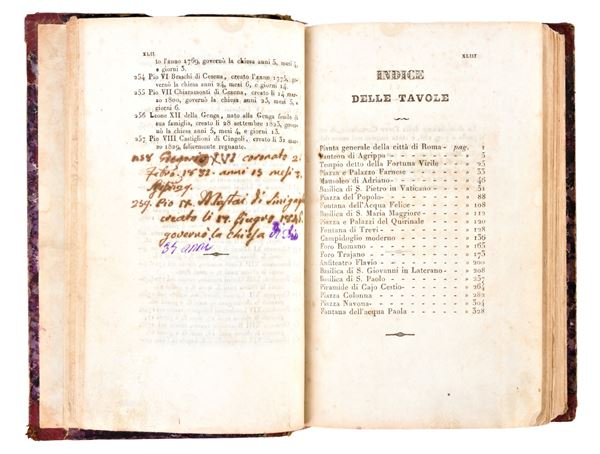 XLII
to l'anno 1769, governò la chiesa anni 5, mesi 4,
e giorni 3.
254 Pio VI Braschi di Cesena, creato l'anno 1775, go-
vernò la chiesa anni 24, mesi 6, e giorni 14.
255 Pio VII Chiaramonti di Cesena, creato li 14 mar-
zo 1800, governò la chiesa anni 23, mesi 5,
e giorni 6.
256 Leone XII della Genga, nato alla Genga feudo di
sua famiglia, creato li 28 settembre 1823, gover-
nò la chiesa anni 5, mesi 4, e giorni 13.
257 Pio VIII Castiglioni di Cingoli, creato li 31 mar-
zo 1829, felicemente regnante.
258 Gregorio XVI coronato 2.
Febro. 1831. anni 15 mesi 3.
29.
259. Pio IX. Mastai di Sinigaglia
creato li 17. Giugno 1846.
governò la chiesa
anni
XLIII
INDICE
DELLE TAVOLE
Pianta generale della città di Roma - pag. 1
Panteon di Agrippa - - - - - - - » 3
Tempio detto della Fortuna Virile - - » 25
Piazza e Palazzo Farnese - - - - - » 33
Mausoleo di Adriano - - - - - - » 46
Basilica di S. Pietro in Vaticano - - - » 51
Piazza del Popolo - - - - - - - » 88
Fontana dell'Acqua Felice - - - - - » 108
Basilica di S. Maria Maggiore - - - - » 112
Piazza e Palazzi del Quirinale - - - - » 119
Fontana di Trevi - - - - - - - » 128
Campidoglio moderno - - - - - - » 136
Foro Romano - - - - - - - - » 165
Foro Trajano - - - - - - - - » 173
Anfiteatro Flavio - - - - - - - » 200
Basilica di S. Giovanni in Laterano - - » 208
Basilica di S. Paolo - - - - - - » 237
Piramide di Cajo Cestio - - - - - » 264
Piazza Colonna - - - - - - - » 282
Piazza Navona - - - - - - - - » 304
Fontana dell'acqua Paola - - - - - » 328